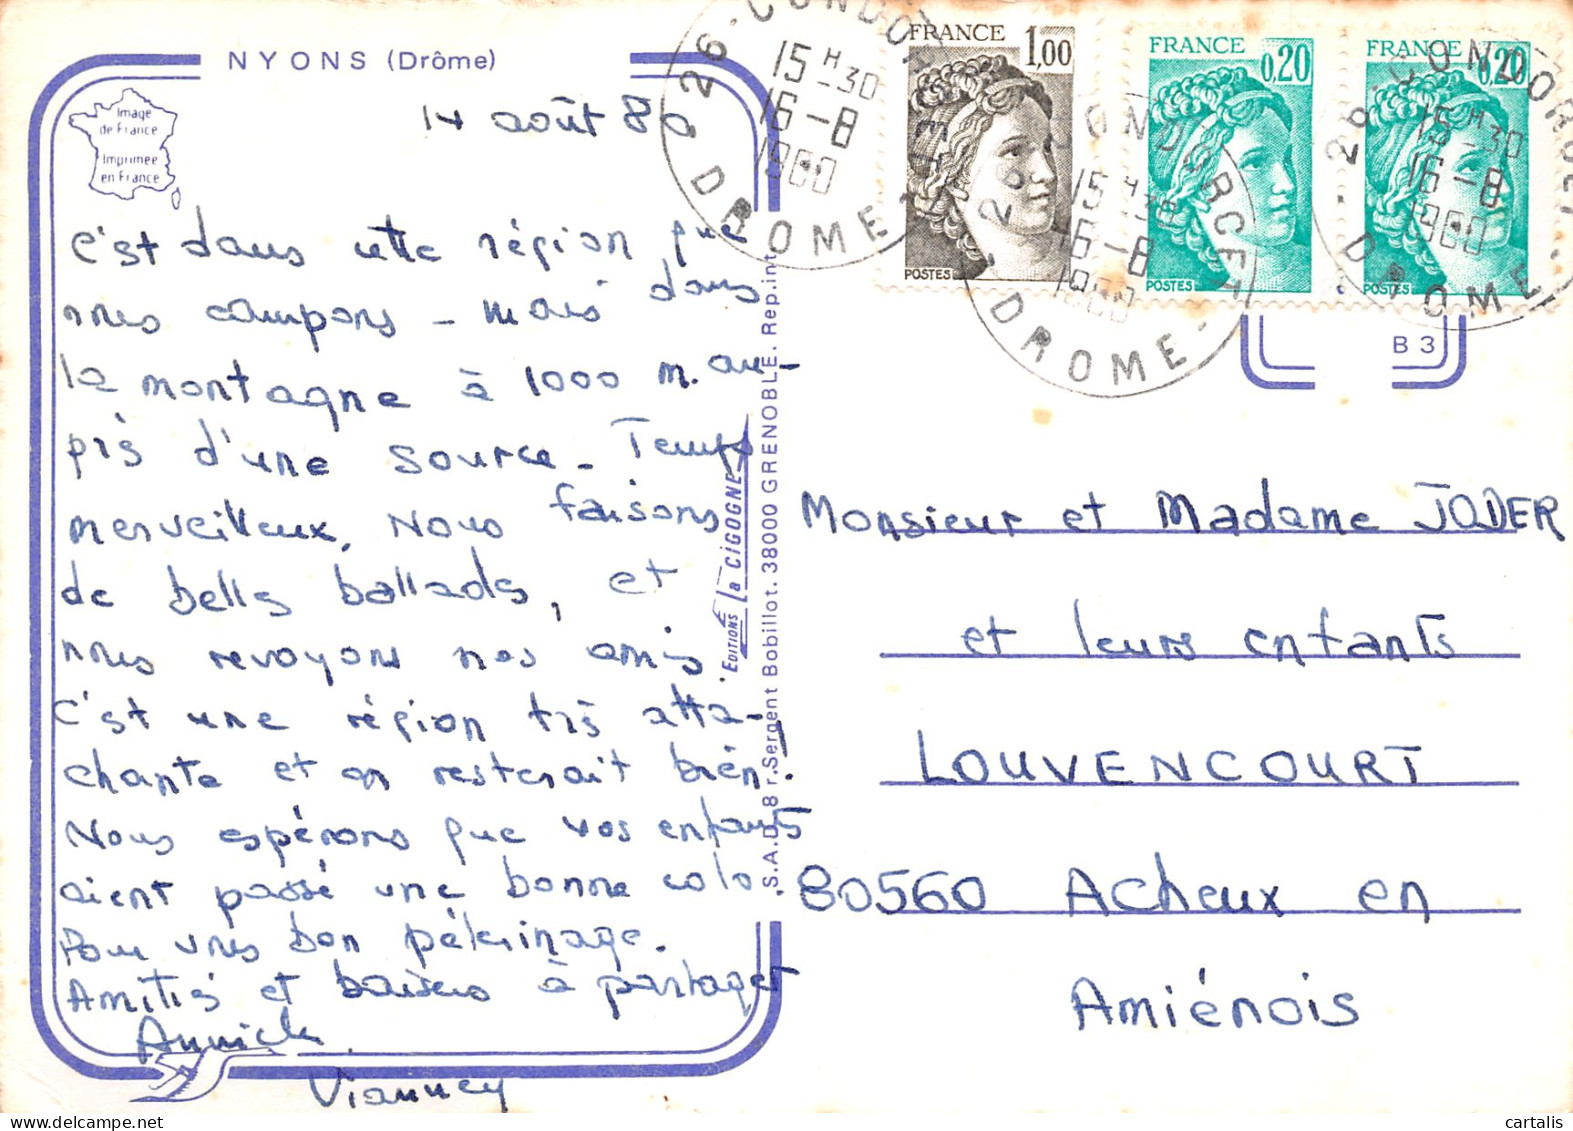 NYONS (Drôme)
Image
de France
Imprimée
en France
14 août 80
C'est dans cette région que
nous campons - mais dans
la montagne à 1000 m. au-
près d'une source - Temps
merveilleux, Nous faisons
de belles ballades, et
nous revoyons nos amis.
C'est une région très atta-
chante et on resterait bien.
Nous espérons que vos enfants
aient passé une bonne colo.
Pour vous bon pélerinage.
Amitiés et baisers à partager
Annick
Vianney
EDITIONS la CIGOGNE
S.A.D. 8 r. Sergent Bobillot. 38000 GRENOBLE. Rep. int.
26 - CONDORCET
15 H 30
16 - 8
1980
DROME
FRANCE
1,00
POSTES
26 - CONDORCET
15 H 30
16 - 8
1980
DROME
FRANCE
0,20
POSTES
26 - CONDORCET
15 H 30
16 - 8
1980
DROME
FRANCE
0,20
POSTES
B 3
Monsieur et Madame JODER
et leurs enfants
LOUVENCOURT
80560 Acheux en
Amiénois
cartalis